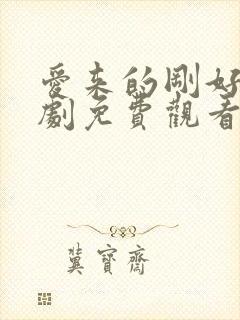 愛来的剛好
劇免費觀看
冀寶齋